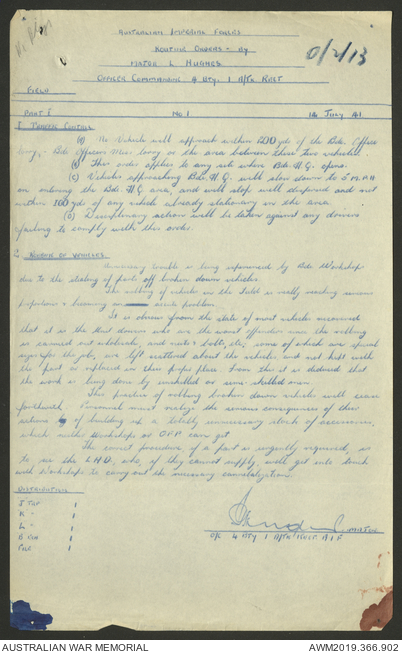 AUSTRALIAN IMPERIAL FORCES
ROUTINE ORDERS - BY
MAJOR L HUGHES
OFFICER COMMANDING 4 BTY. 1 A/TK REGT
0/2/13
FIELD
PART I No 1 14 JULY 41
1. TRAFFIC CONTROL
(a) No Vehicle will approach within 1200 yds of the Bde. Office
lorry, Bde Officers Mess lorry or the area between these two vehicles.
(b) This order applies to any site where Bde. H.Q. opens.
(c) Vehicles approaching Bde. H.Q. will slow down to 5 M.P.H
on entering the Bde. H.Q area, and will stop well dispersed and not
within 100 yds of any vehicle already stationary in the area.
(d) Disciplinary action will be taken against any drivers
failing to comply with this order.
2. ROBBING OF VEHICLES.
trouble is being experienced by Bde Workshops
due to the stealing of parts off broken down vehicles.
The robbing of vehicles in the field is really reaching serious
proportions & becoming an acute problem.
It is obvious from the state of most vehicles recovered
that it is the that drivers who are the worst offenders since the robbing
is carried out wholesale, and nuts & bolts, etc, some of which are special
for the job, are left scattered about the vehicle and not kept with
the part or replaced in their proper place. From this it is deduced that
the work is being done by unskilled or semi-skilled men.
This practice of robbing broken down vehicles will cease
forthwith. Personnel must realize the serious consequences of their
actions of building up a totally unnecessary stock of accessories,
which neither Workshops or OFP can get.
The correct procedure, if a part is urgently required, is
to see the LAD, who, if they cannot supply, will get into touch
with Workshops to carry out the necessary cannibalization.
DISTRIBUTION
J TRP 1
K " 1
L " 1
B ECH 1
FILE 1
MAJOR
O/C 4 BTY 1 A/TK REGT A I F
AUSTRALIAN WAR MEMORIAL
AWM2019.366.902